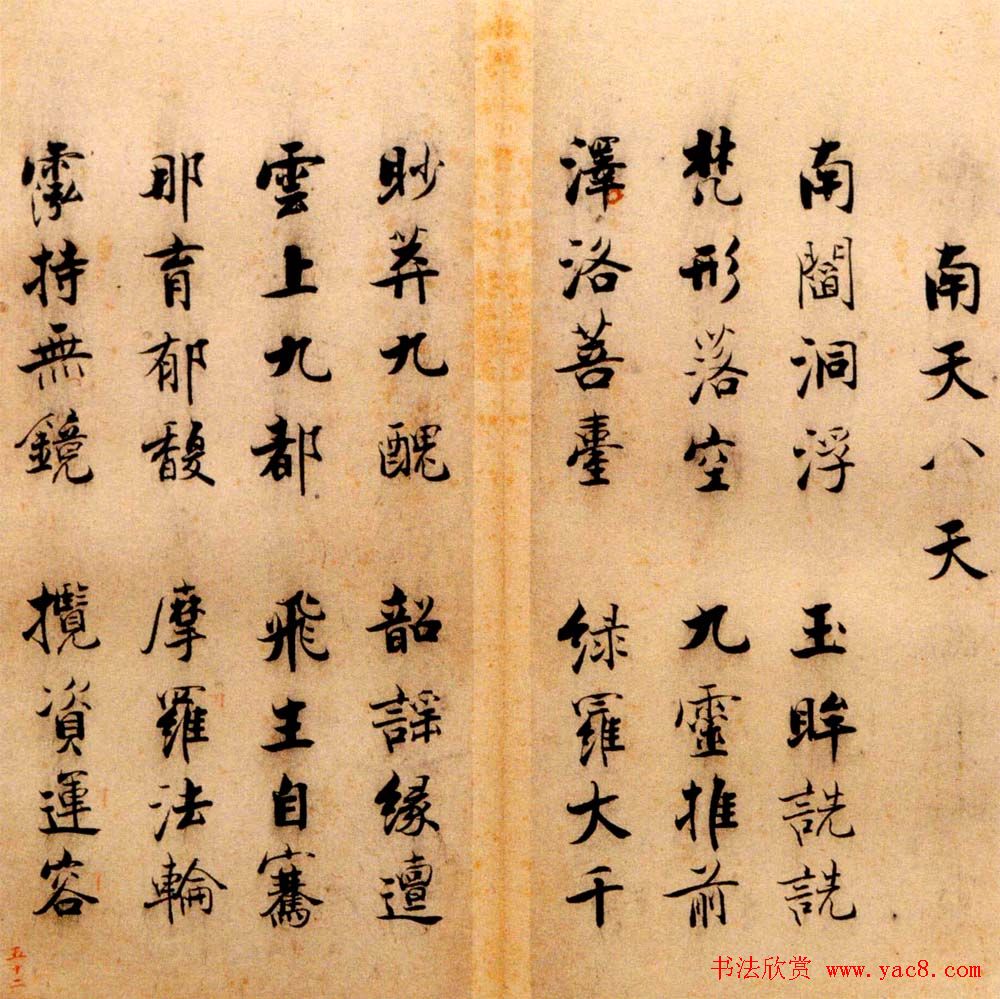 南天八天
南閻洞浮 玉眸詵詵
梵形落空 九靈推前
澤洛菩臺 綠羅大千
眇莽九醜 韶謠緣邅
雲上九都 飛生自騫
那育郁馥 摩羅法輪
霐持無鏡 攬資運容
五十二
书法欣赏 www.yac8.com